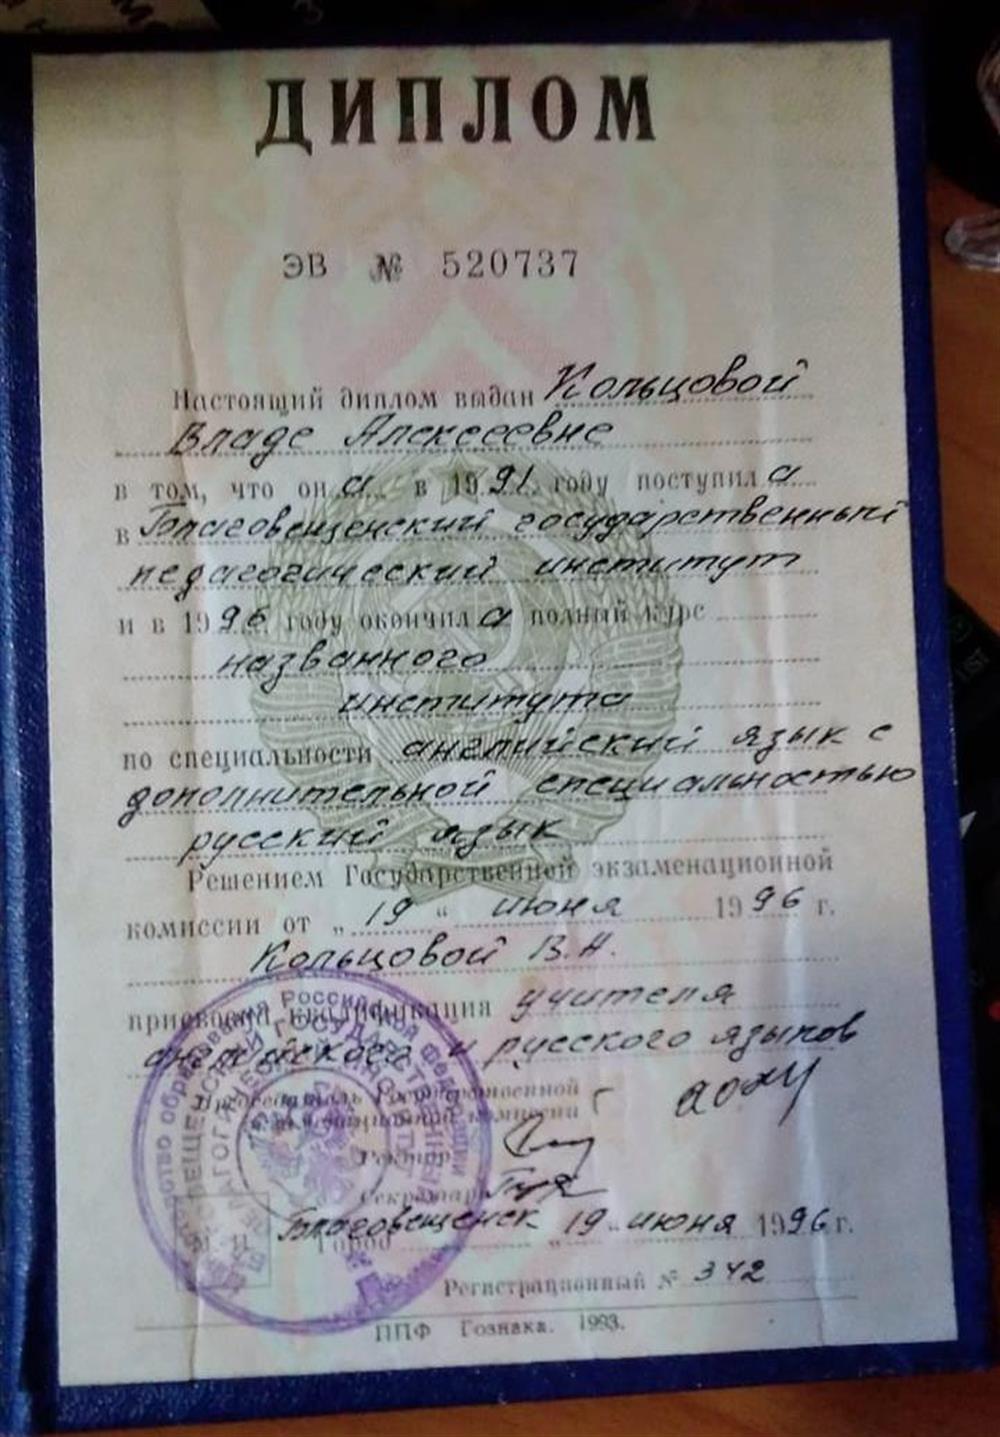 ДИПЛОМ
ЭВ № 520737
Настоящий диплом выдан Кольцовой
Владе Алексеевне
в том, что он а в 1991 году поступил а
в Благовещенский государственный
педагогический институт
и в 1996 году окончил а полный курс
названного
института
по специальности английский язык с
дополнительной специальностью
русский язык
Решением Государственной экзаменационной
комиссии от „19“ июня 1996 г.
Кольцовой В.А.
присвоена квалификация учителя
английского и русского языков
Председатель Государственной
экзаменационной комиссии
Ректор
Секретарь
Город Благовещенск 19 июня 1996 г.
Регистрационный № 342
ППФ Гознака. 1993.